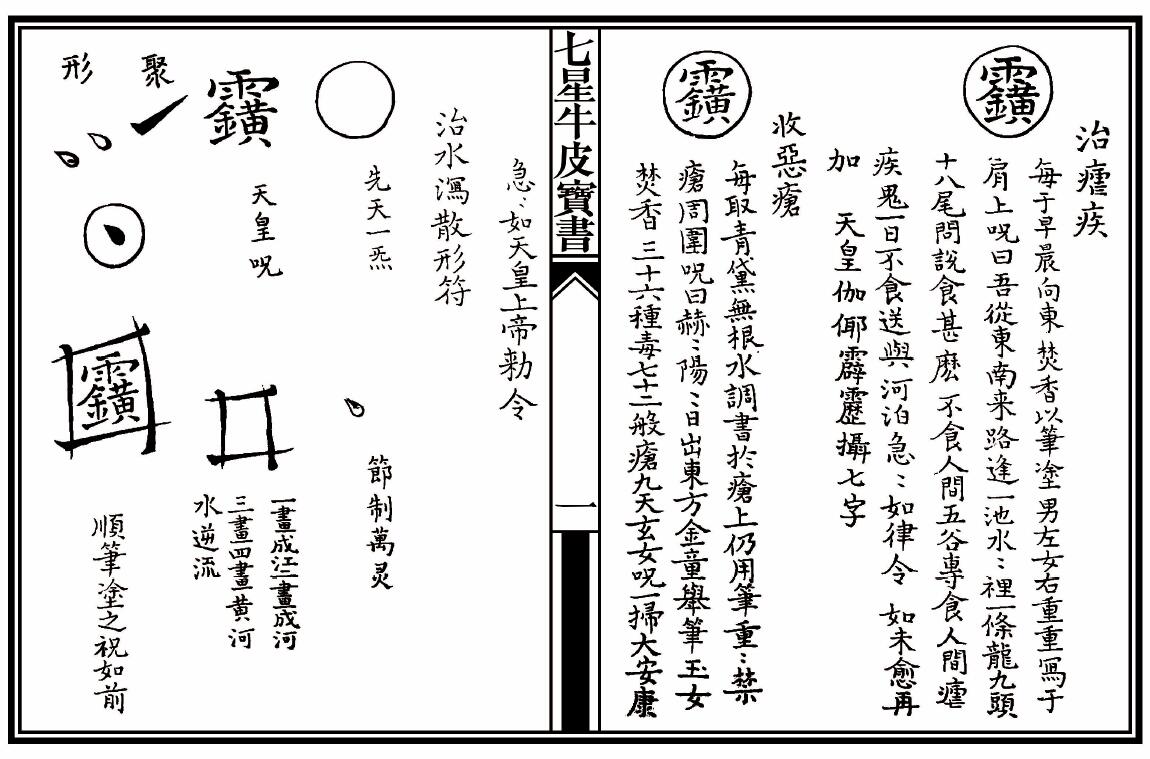 治瘧疾
每于早晨向東焚香以筆塗男左女右重重寫于
肩上呪曰吾從東南来路逢一池水〻裡一條龍九頭
十八尾問説食甚麽不食人間五谷專食人間瘧
疾鬼一日不食送與河泊急〻如律令 如未愈再
加 天皇伽倻霹靂攝七字
收惡瘡
每取青黛無根水調書於瘡上仍用筆重〻禁
瘡周圍呪曰赫〻陽〻日出東方金童舉筆玉女
焚香三十六種毒七十二般瘡九天玄女呪一掃大安康
七星牛皮寶書
一
急〻如天皇上帝勑令
治水瀉散形符
先天一炁
節制萬灵
天皇呪
一畫成江二畫成河
三畫四畫黄河
水逆流
聚
形
順筆塗之祝如前